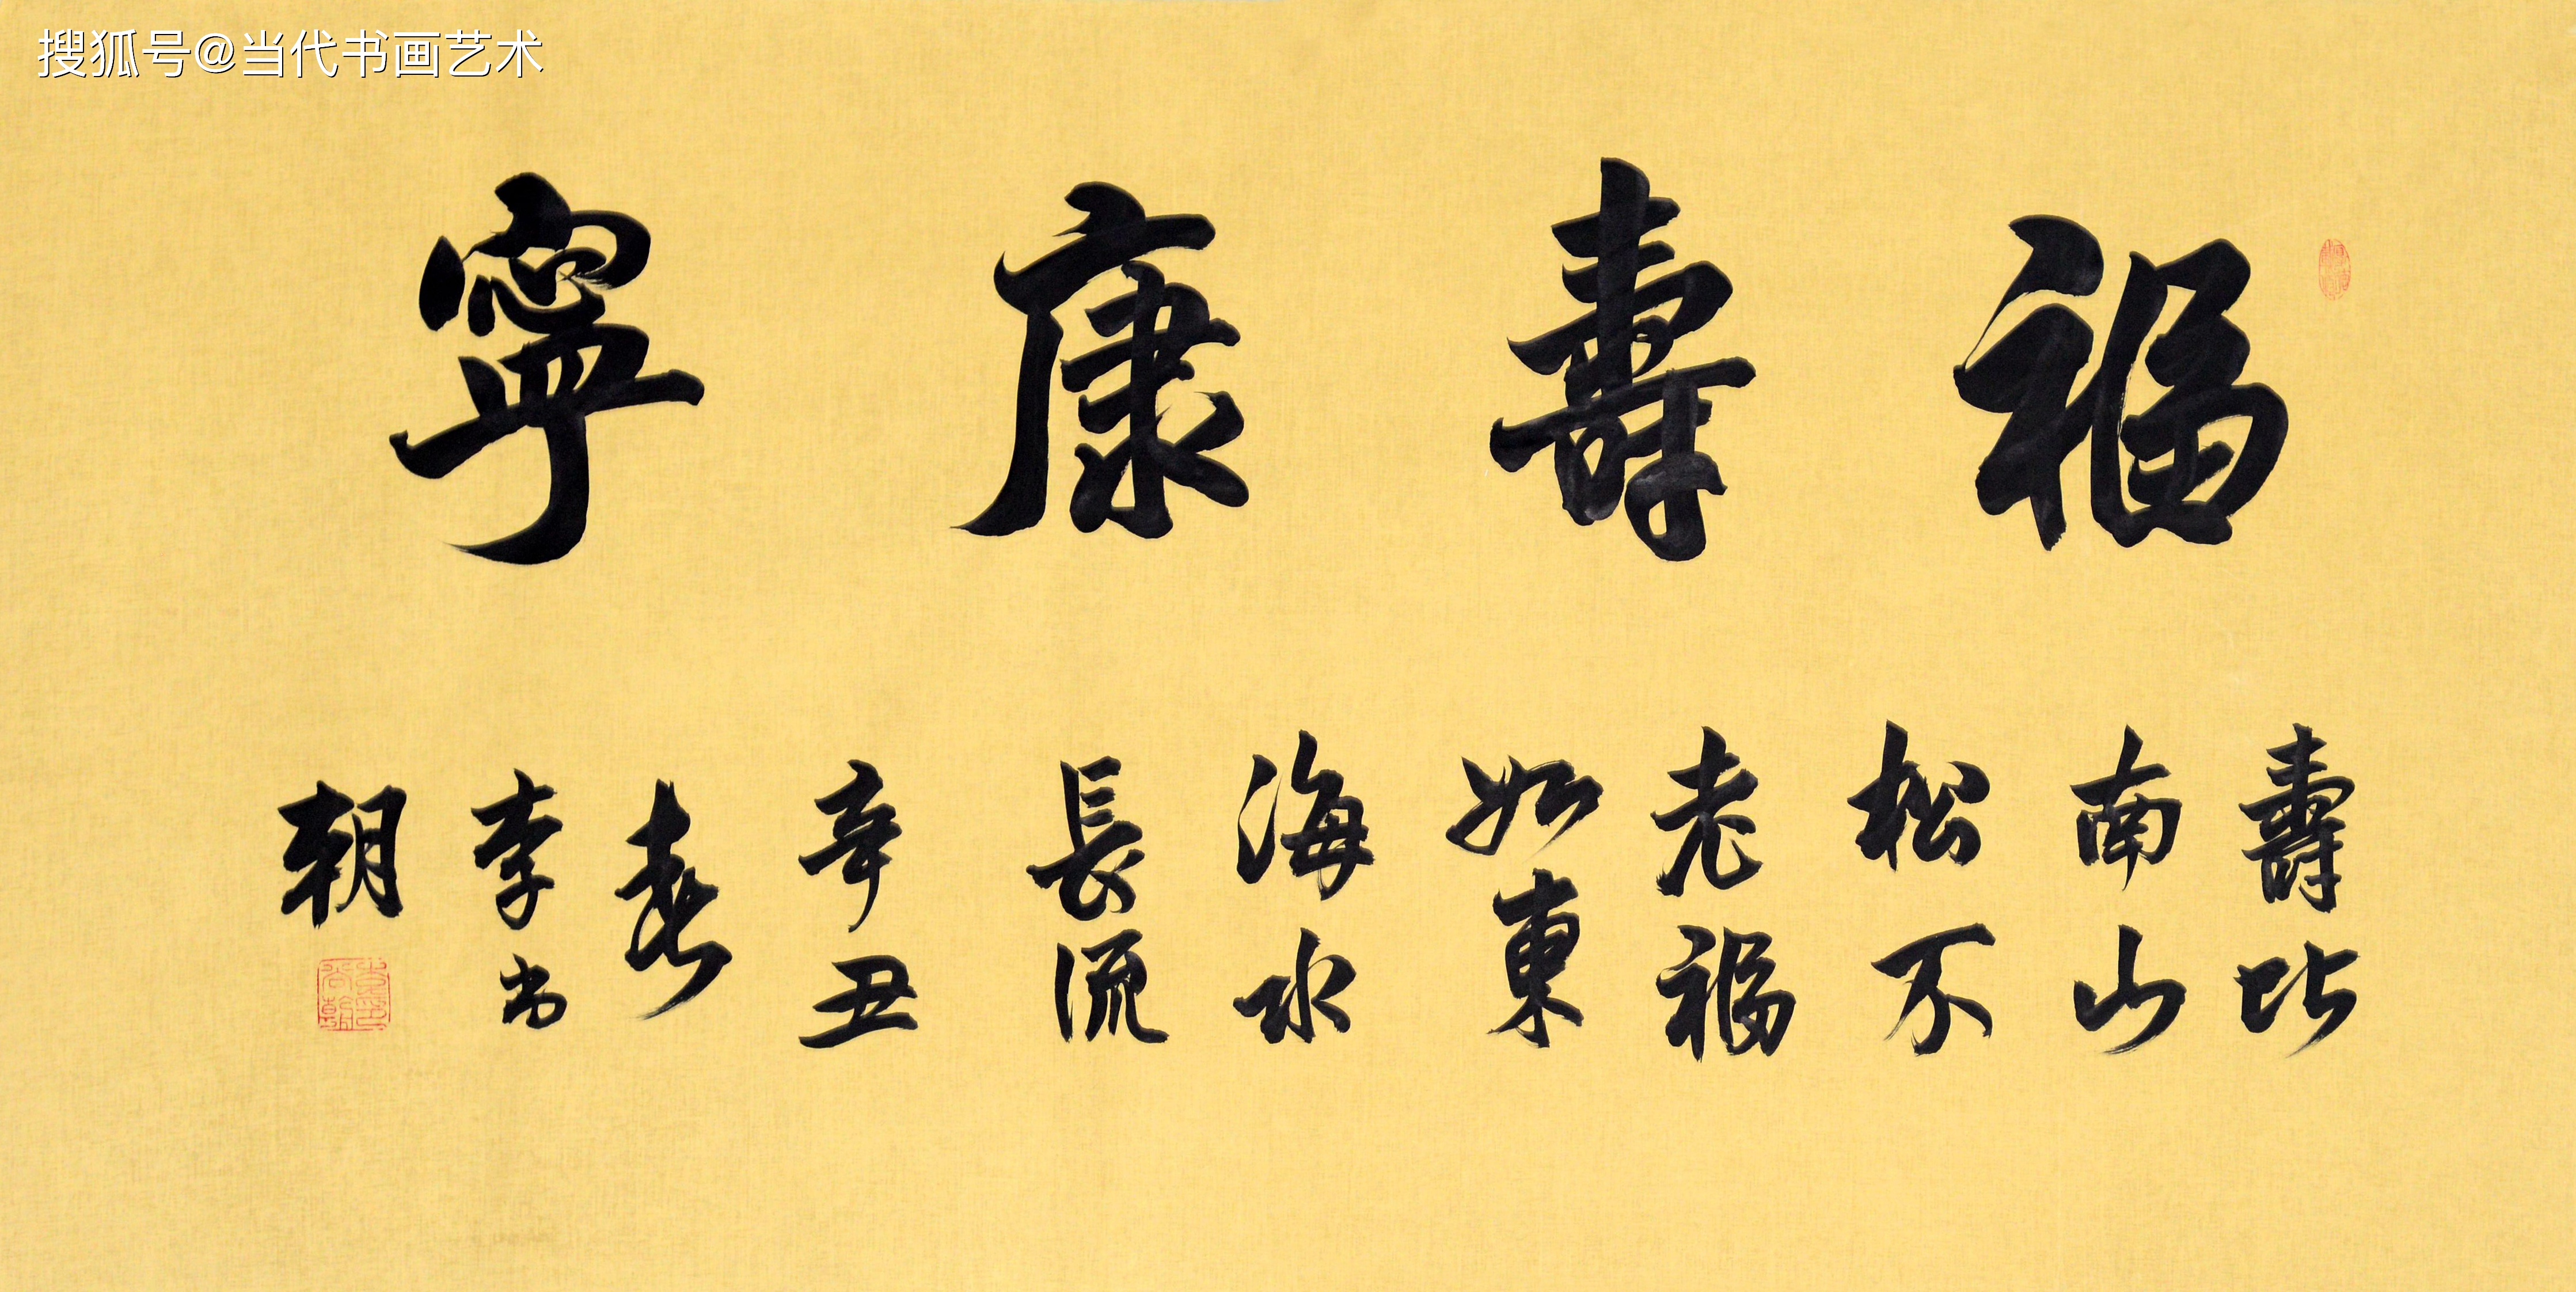 搜狐号@当代书画艺术
福壽康寧
壽比
南山
松不
老福
如東
海水
長流
辛丑
春
李
朝